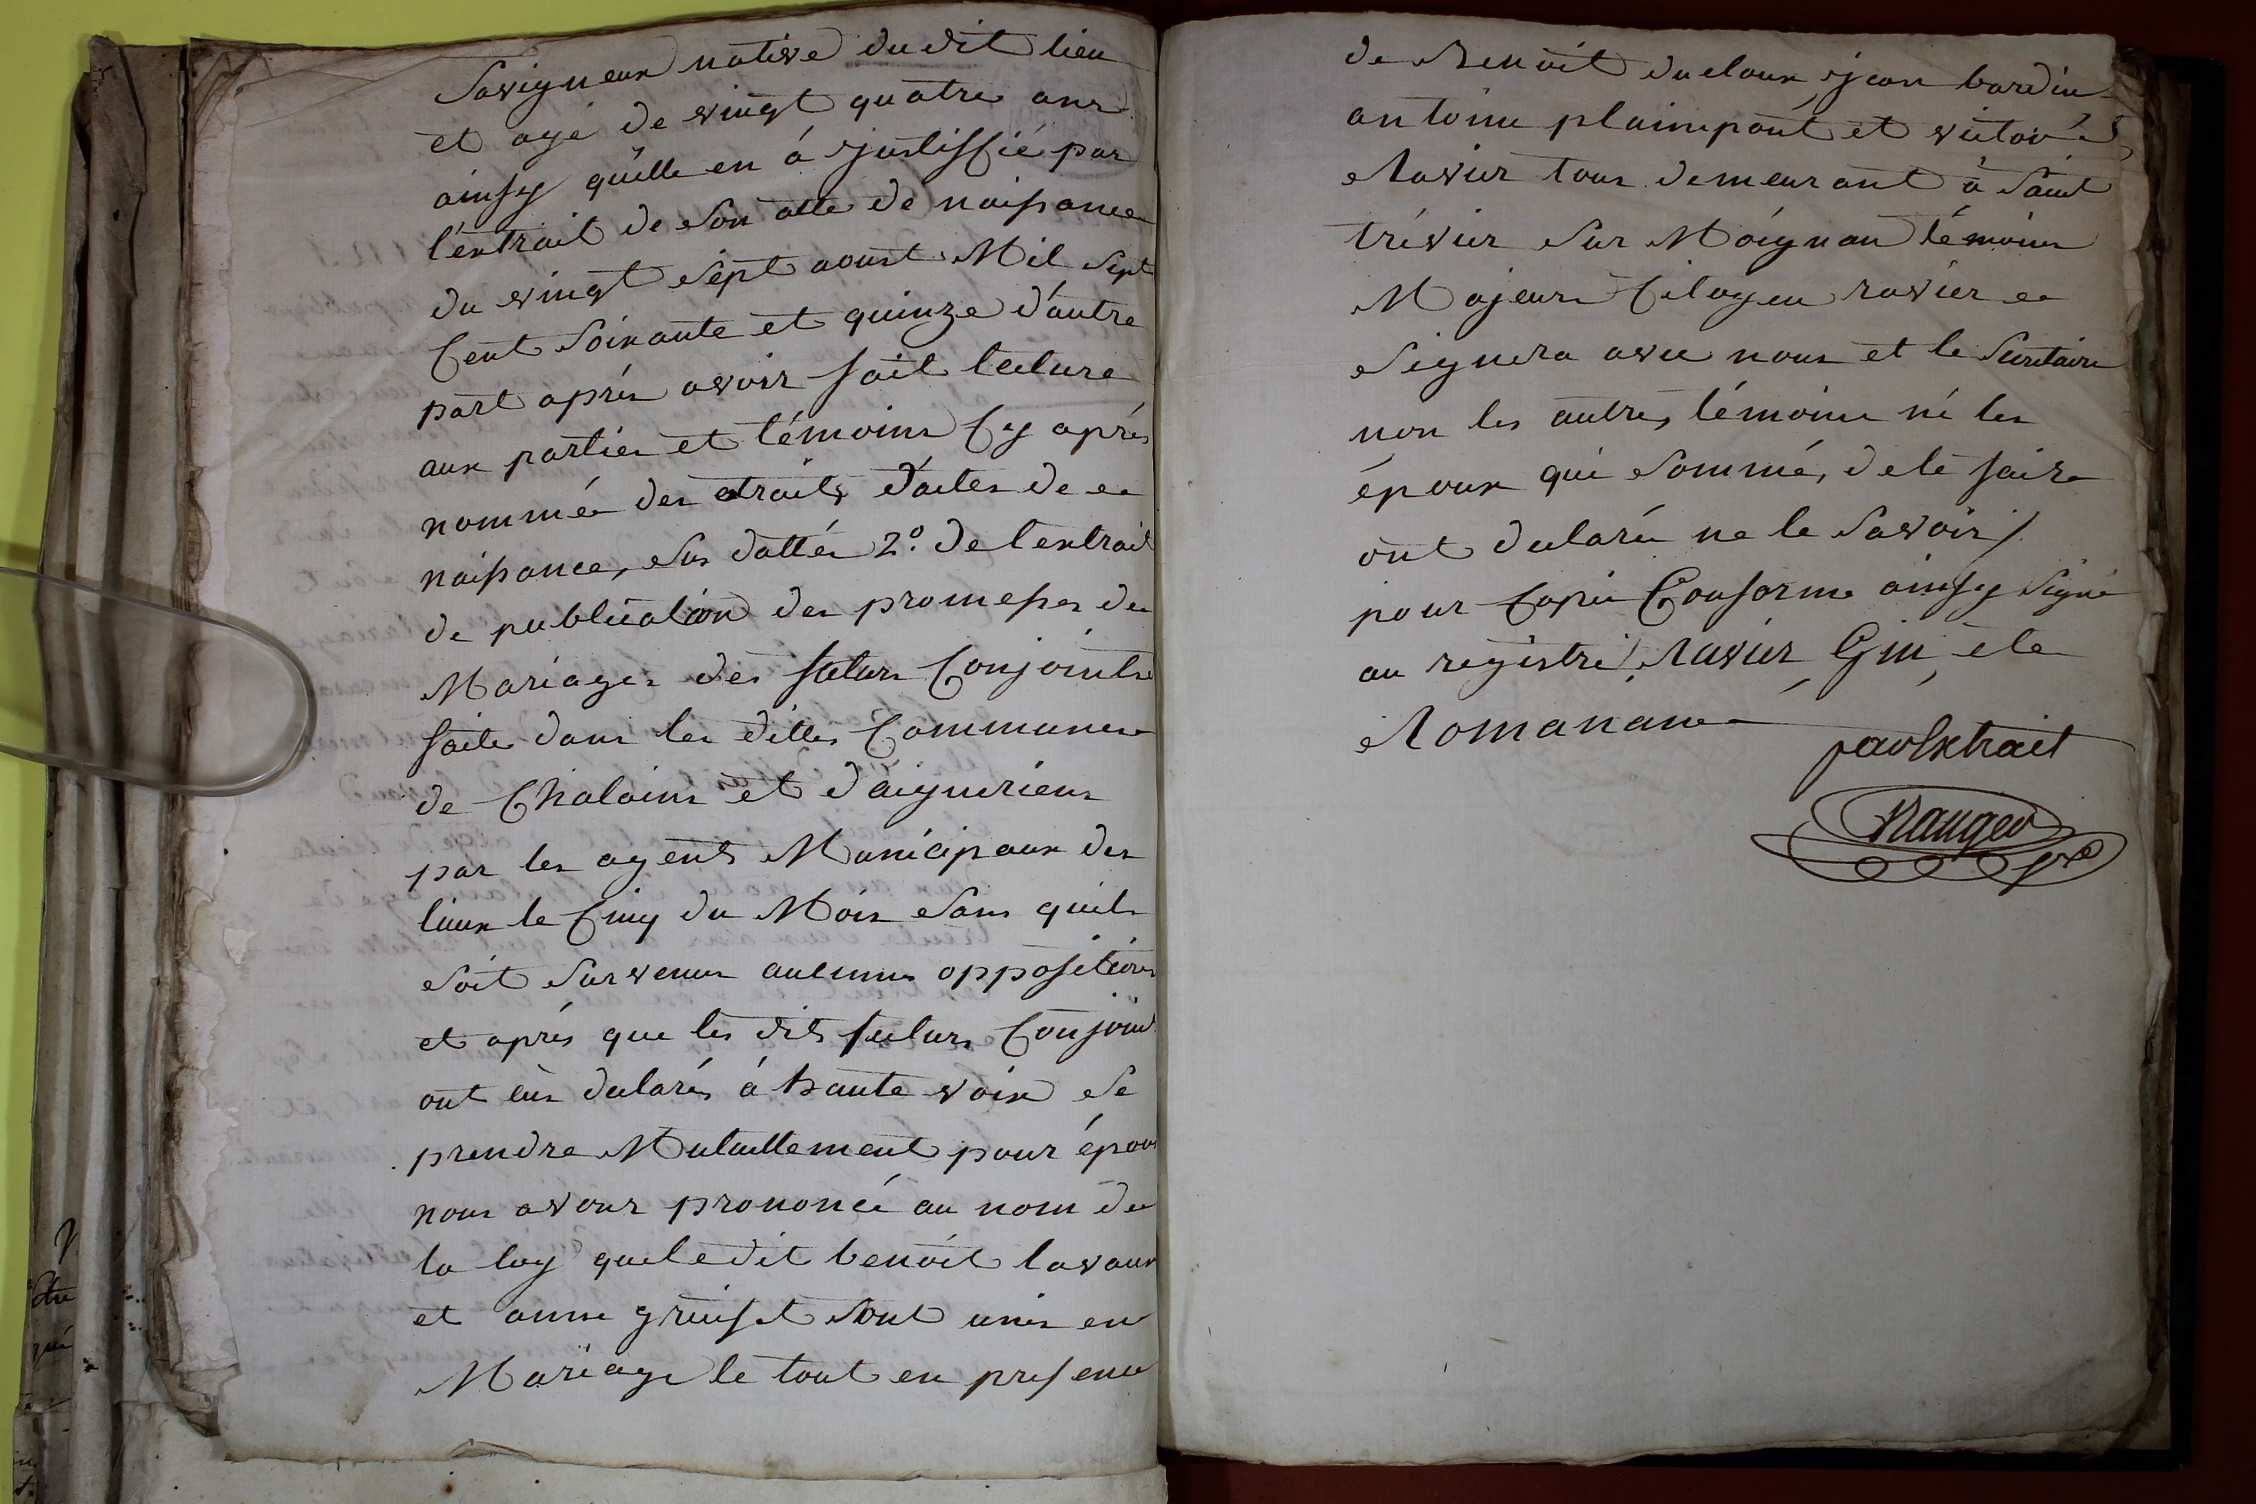 Savigneux native du dit lieu
et agé de vingt quatre ans
ainsy quelle en á justiffié par
l'extrait de son acte de naissance
du vingt sept aoust Mil sept
Cent soixante et quinze d'autre
part aprés avoir fait lecture
aux parties et témoins Cy aprés
nommés des extraits d'actes de
naissance, sus dattés 2º. de l'extrait
de publication des promesses de
Mariages des futurs Conjoints
faite dans les dittes Communes
de Chaleins et d'aigurieux
par les agents Municipaux des
lieux le Cinq du Mois sans quil
soit survenus aucunes oppositions
et aprés que les dits futurs Conjoint
ont eus declarés á haute voix se
prendre Mutuellement pour époux
nous avons prononcé au nom de
la loy que ledit benoit lavaux
et anne gruiset sont unis en
Mariage le tout en presence
de Benoit ducloux, jean bardin
antoine plainpont et victor
Ravier tous demeurant à Saint
trévier sur Moignan témoins
Majeurs Citoyen ravier
signera avec nous et le Secretaire
non les autres témoins né les
époux qui sommé, de le faire
ont declarés ne le savoir/.
pour Copie Conforme ainsy signé
au registre, Ravier, Gin, ete
Romanans
par Extrait
Nauger